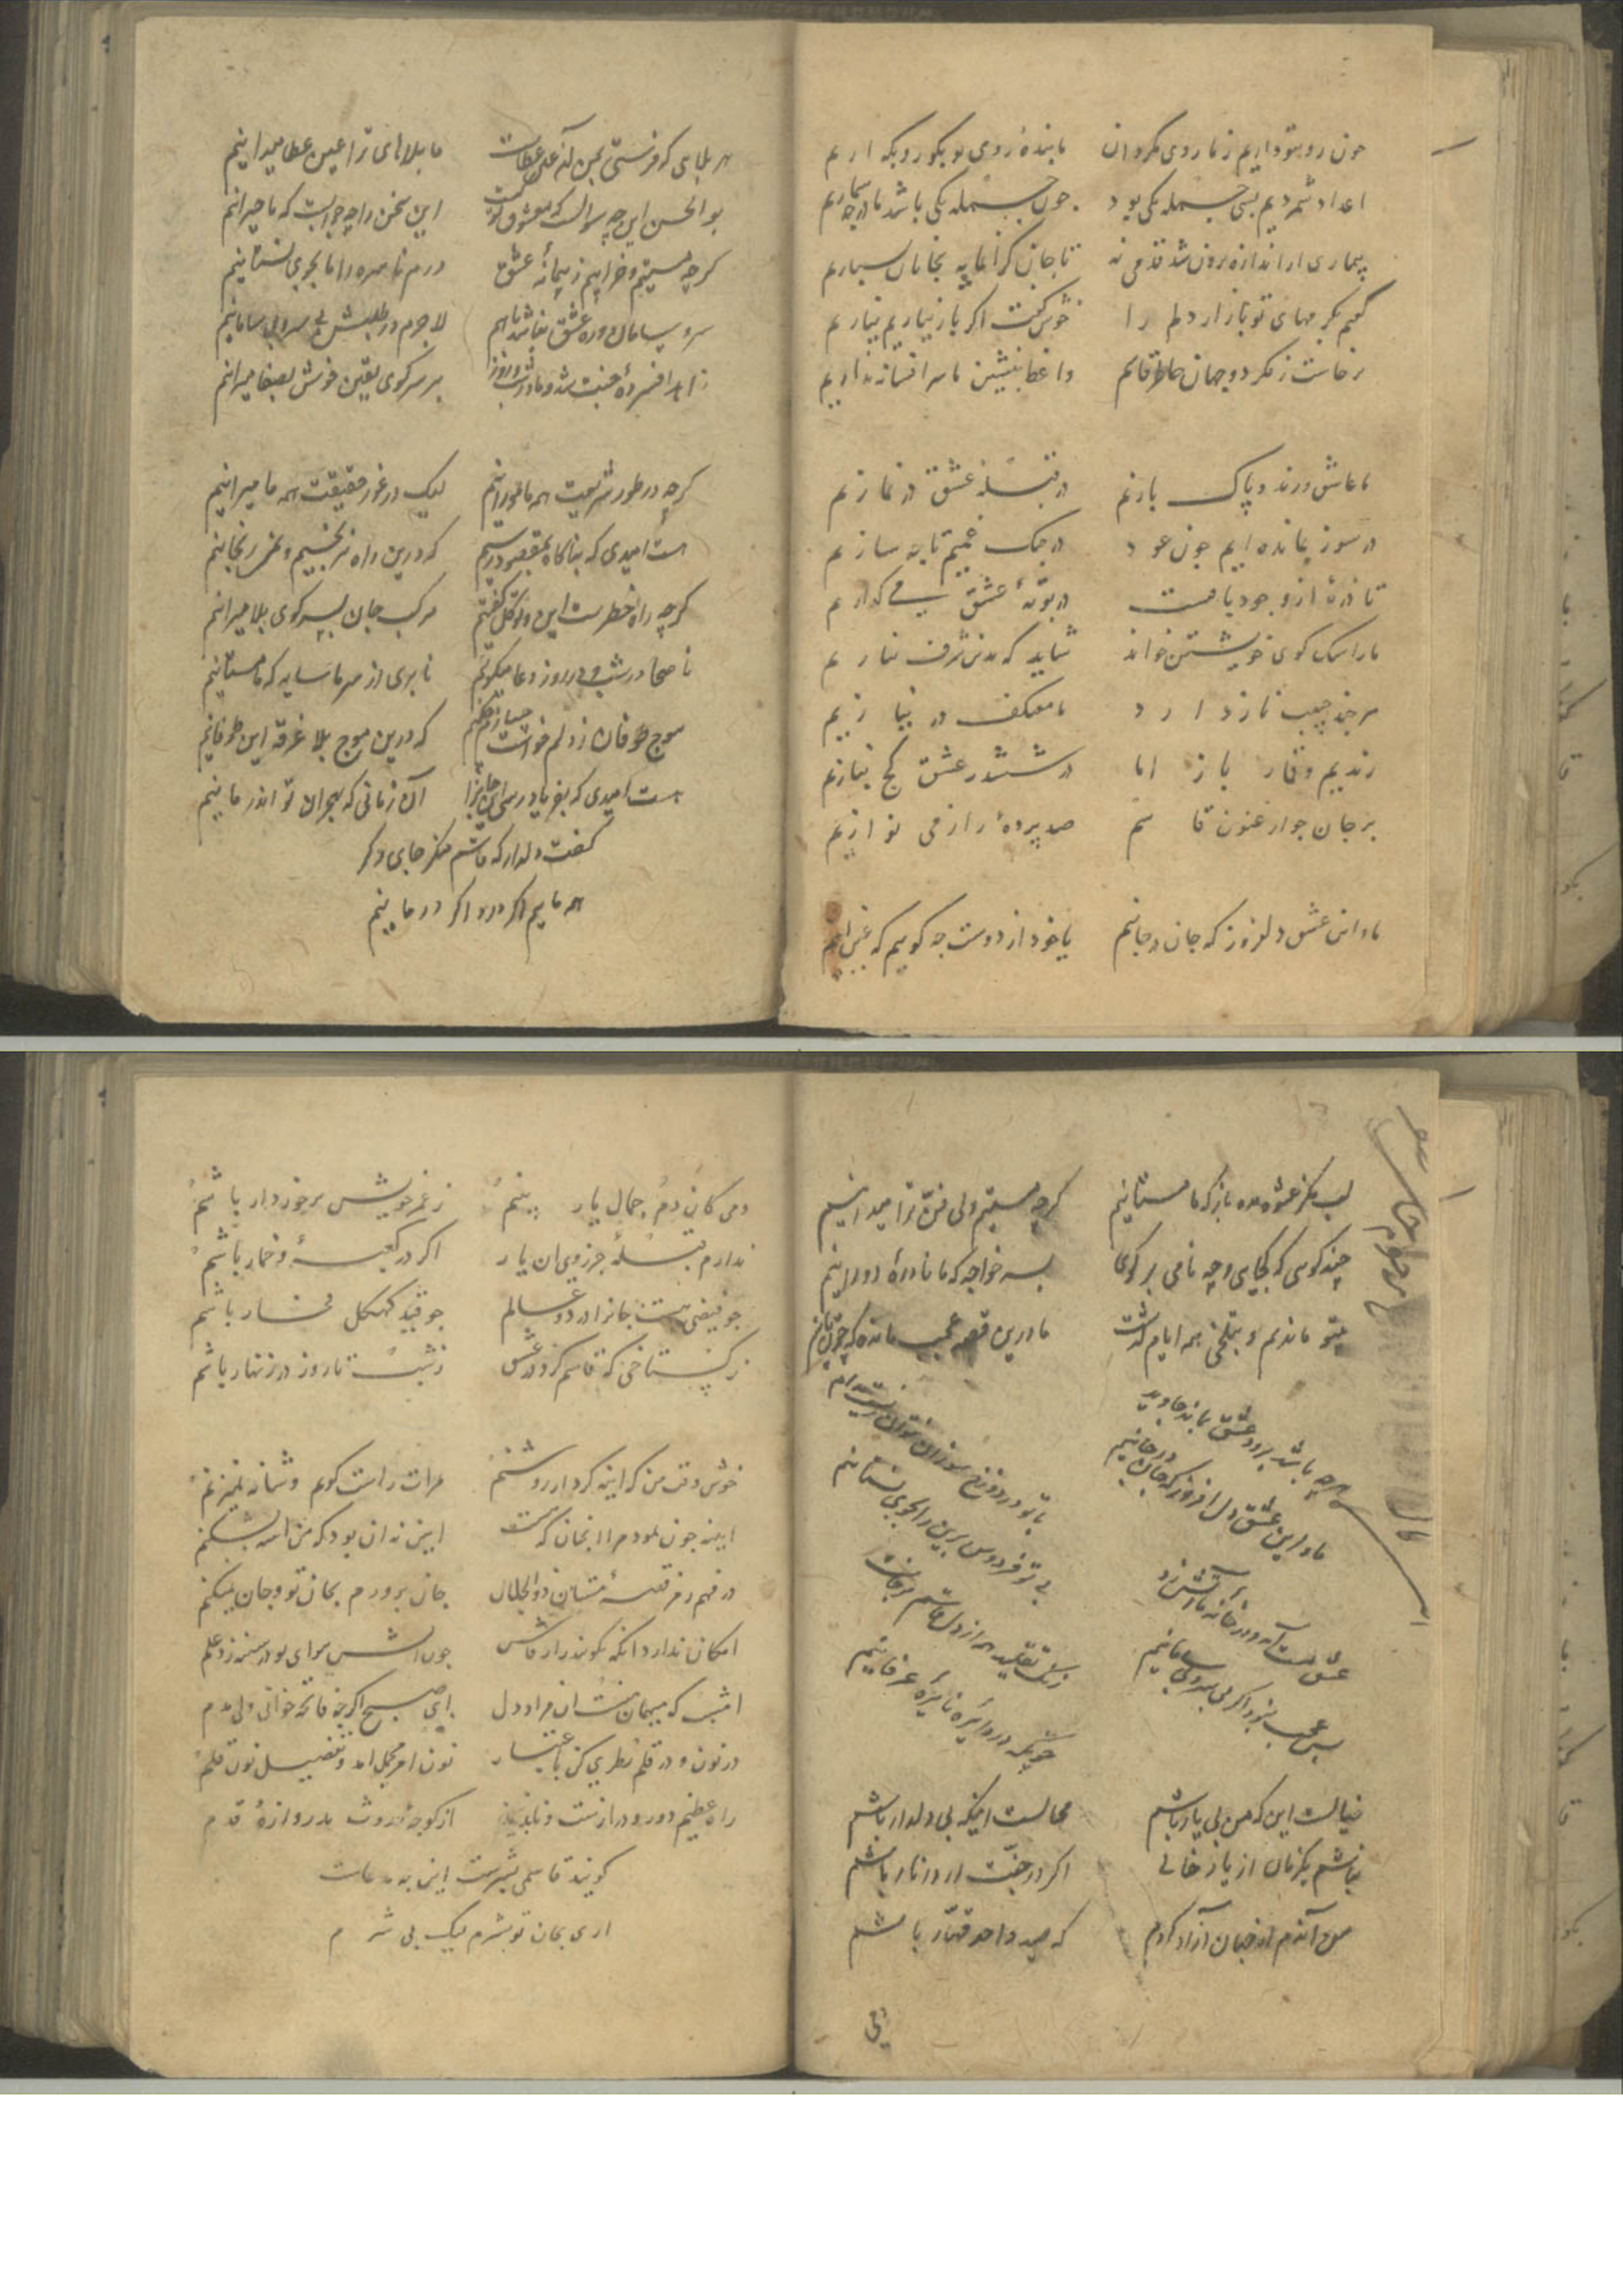 چون رو بتو داریم ز ما روی مگردان ما بنده روی تو نکو رو نکه اریم
اعداد شمردیم بسی جمله یکی بود چون جمله یکی باشد ما در چه شماریم
تا جان گرانمایه بجانان سپاریم
گفتم بکرمهای تو باز ار دلم را خوش گفت اگر باز نیاریم نیاریم
برخاست ز فکر دو جهان خاطر قاسم واعظ بنشین ما سر افسانه نداریم
ما عاشق و رند و پاک بازیم در قبله عشق در نمازیم
در سوز بمانده ایم چون عود در چنگ غمیم تا چه سازیم
تا ذره از وجود باقیست در بوته عشق می گدازیم
ما را سگ کوی خویشتن خواند شاید که بدین شرف بنازیم
هر چند حبیب ناز دارد ما معتکف در نیازیم
رندیم و قمار باز اما در ششدر عشق کج نبازیم
بر جان چو ارغنون قاسم صد پرده راز می نوازیم
ما و این عشق دلفروز که جان در جانیم با خود از دوست چه گوییم که
هر بلایی که فرستی بمن آن عین عطاست ما بلاهای ترا عین عطا میدانیم
بو الحسن این چه سوالست که معشوق تو کیست این سخن را چه جوابست که ما حیرانیم
گرچه مستیم و خرابیم ز پیمانه عشق درم ناسره را ما بجوی نستانیم
سر و سامان در ره عشق نباشد ما هم لاجرم در طلبش بی سر و بی سامانیم
زاهد افسرده جنت شد و ما در شب و روز بر سر کوی یقین خوش بصفا میرانیم
گرچه در طور شریعت همه مأمورانیم لیک در غور حقیقت همه ما میرانیم
هست امیدی که بناگاه بمقصود رسیم که درین راه نرنجیم و نمی رنجانیم
گرچه راه خطرست این و توکل گفتیم مرکب جان بسر کوی بلا میرانیم
ناصحا در شب و در روز دعا میگوئیم تا بری از سر ما سایه که ما مستانیم
موج طوفان ز دلم خواست که درین موج بلا غرقه این طوفانیم
هست امیدی که بفریاد رسی آن زمانی که بهجران تو اندر مانیم
گفت دلدار که قاسم منگر جای دگر
همه ماییم اگر درد اگر درمانیم
گرچه مستیم ولی فن ترا میدانیم
چند گویی که کجایی و چه نامی بر گوی بسر خواجه که ما نادره دورانیم
بیتو ماندیم و بتلخی همه ایام گذشت ما درین قصه عجب مانده که چون
هر چه باشد برود عشق بماند جاوید
ما و این عشق دل افروز که جان در جانیم
با تو در دوزخ سوزان
بی تو فردوس برین را بجوی نستانیم
عشق مست آمد و در خانه ما آتش زد
بس عجب نبود اگر بی سر و بی سامانیم
زنگ تقلید هم از دل قاسم برخاست
چونکه در دایره نایره عرفانیم
خیالست این که من بی یار باشم محالست اینکه بی دلدار باشم
نباشم یکزمان از یار خالی اگر در جنت ار در نار باشم
من آندم از جهان آزاد گردم که صید واحد قهار باشم
دمی
دمی کان دم جمال یار بینم ز عمر خویش برخوردار باشم
ندارم قبله جز روی ان یار اگر در کعبه و خمار باشم
چو فیضی هست جانرا در دو عالم
ز گستاخی که قاسم کرد در عشق ز شب تا روز در زنهار باشم
خوش وقت من که اینه کردار روشنم مرات راست گویم و شانه نمیزنم
آیینه چون نمود مرا انچنان که هست ایین نه ان بود که من اینه بشکنم
در فهم رمز قصه مستان ذوالجلال جان پرورم بجان تو و جان میکنم
امکان ندارد آنکه بگویند راز فاش
امشب که میهمان منست ان مراد دل ای صبح اگر چه فاتحه خوانی ولی مدم
در نون و در قلم نظری کن باعتبار نون امر مجمل امد و تفصیل نون قلم
راه عظیم دور و درازست از کوچه حدوث بدروازه قدم
گویند قاسمی بشرست این چه مدعاست
اری بجان تو بشرم لیک بی شرم